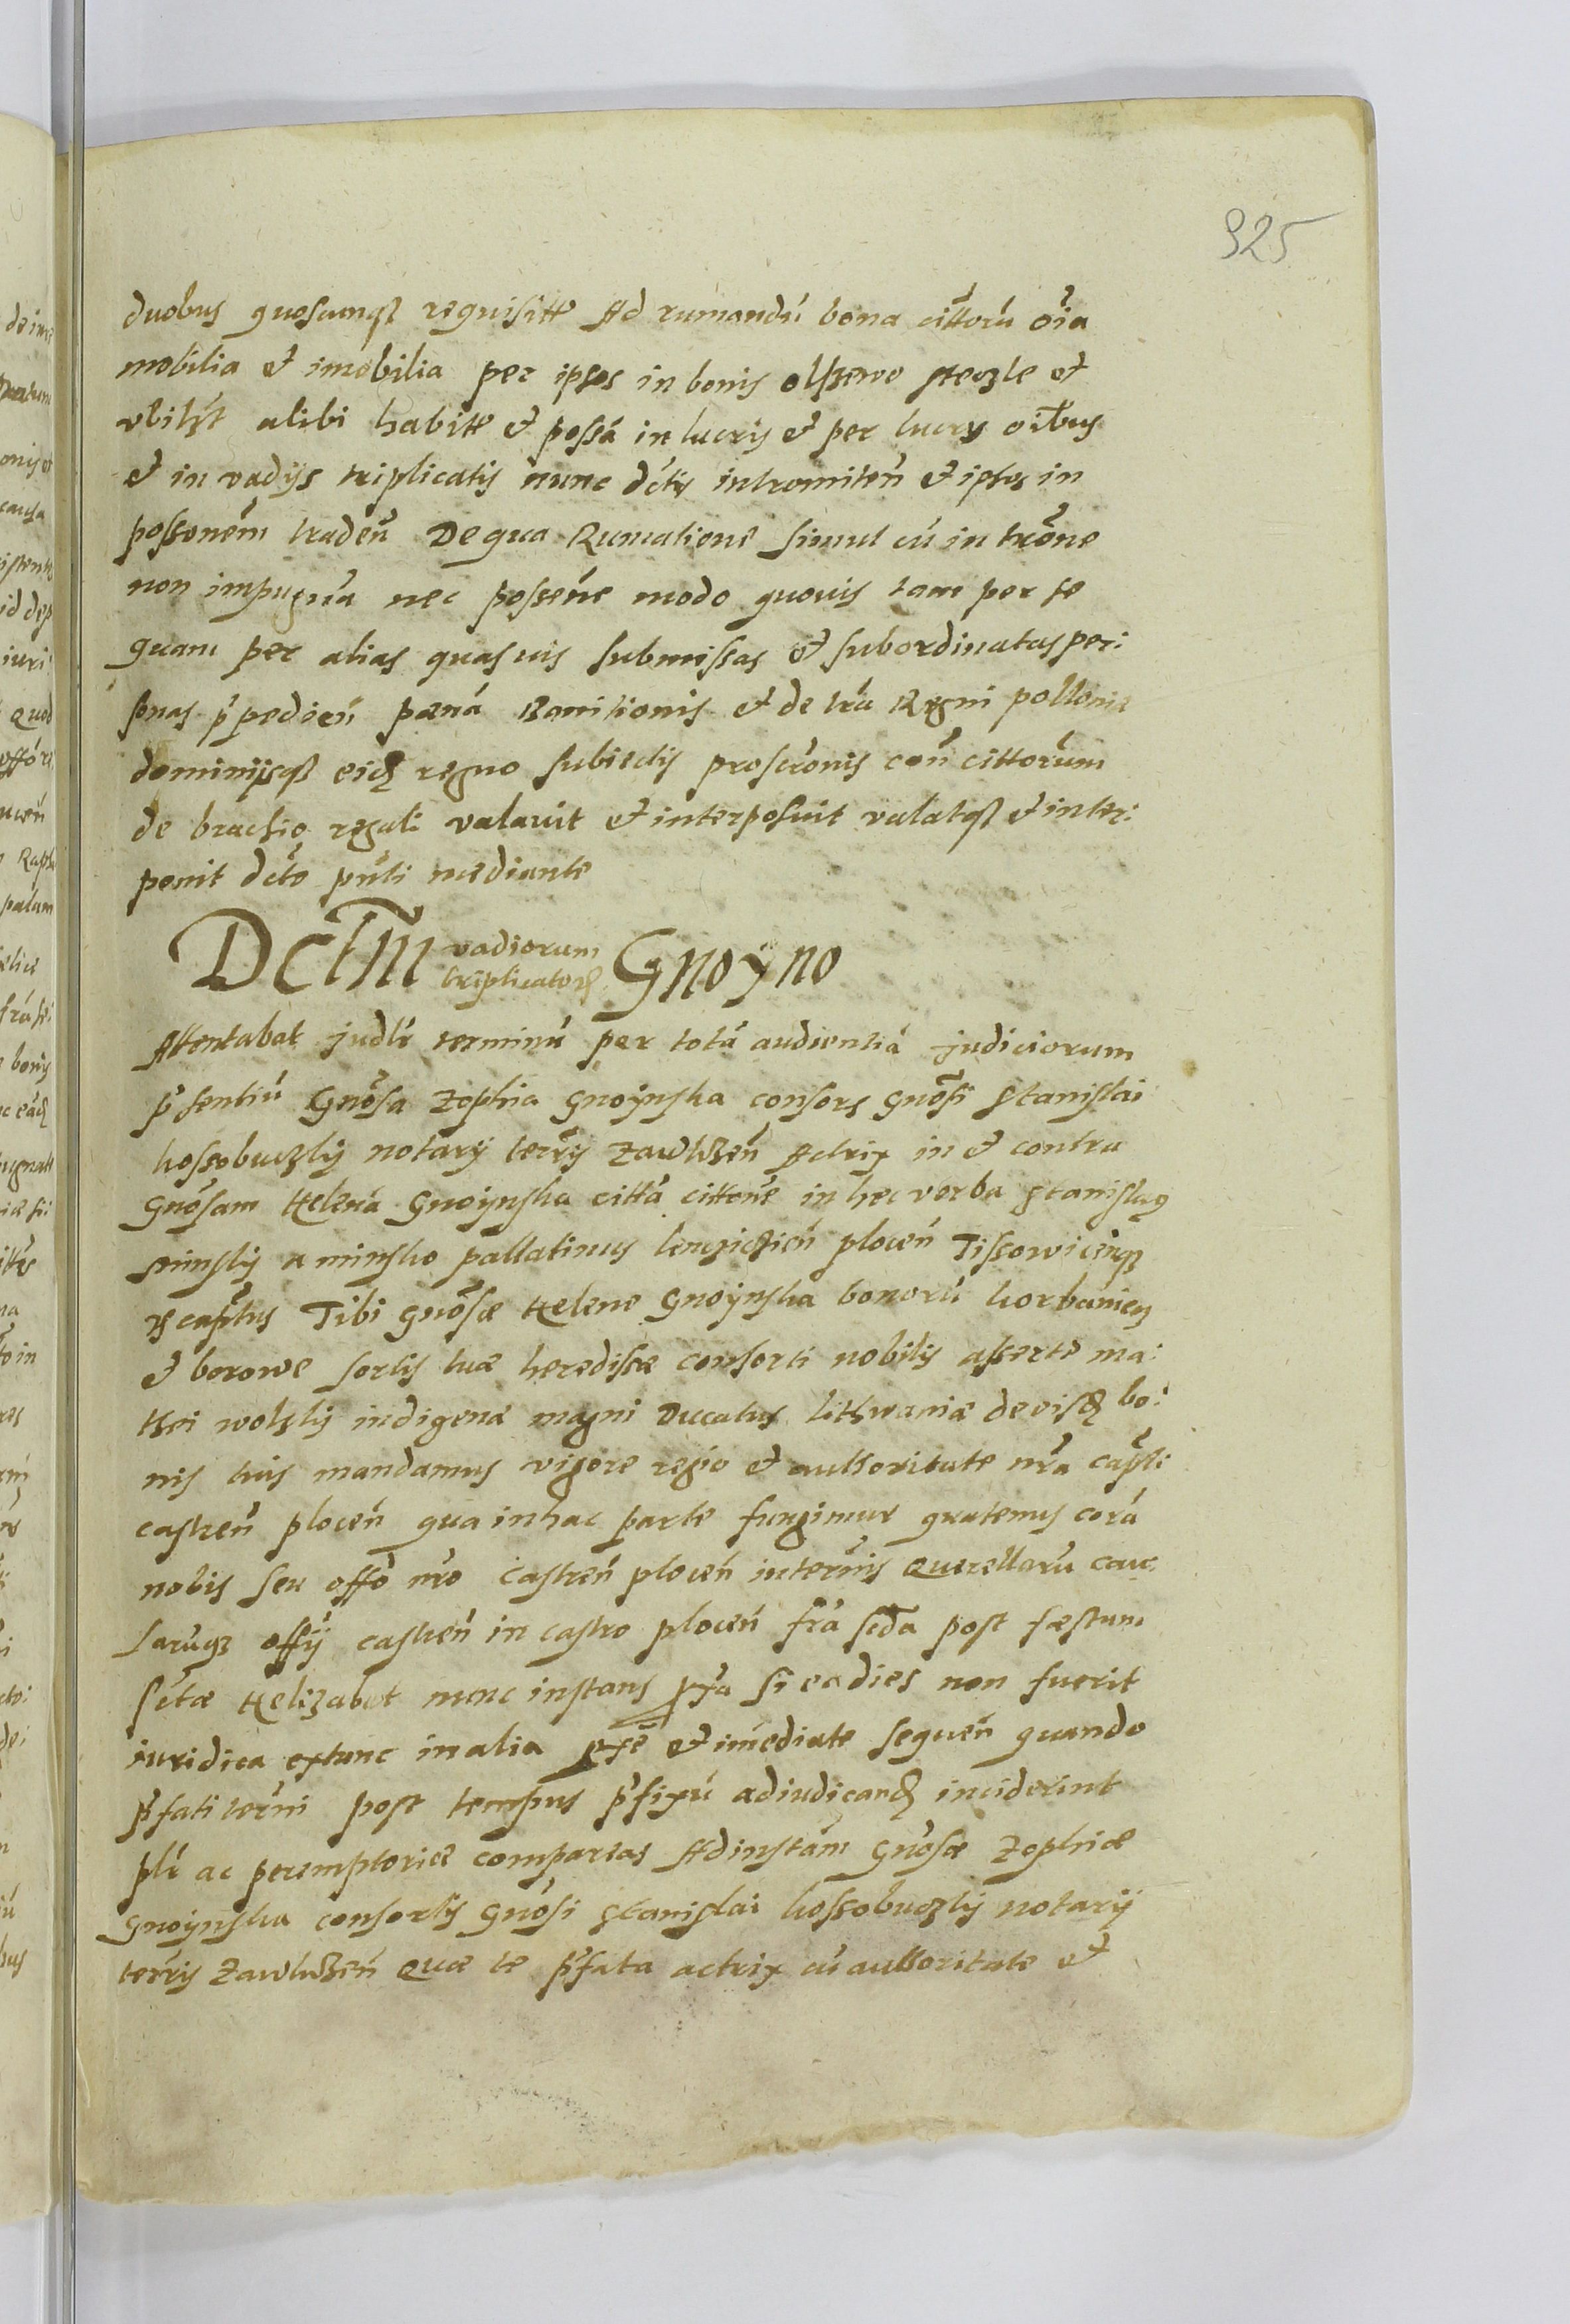 925
duobus quoscunqz requisitte Ad rumandũ bona cittorũ oĩa
mobilia et imobilia per ipsos in bonis olszewo steczle et
vbilzt alibi habitte et possã in lucris et per lucrs oibus
et in vadijs triplicatis nunc dctis intromiteñ et ipsos in
possonem tradeñ De qua Rumatione simul cũ introne
non impugña nec possene modo quouis tam per se
quam per alias quasuis submissas et subordinatas per:
sonas p̃pedieñ pænã Banitionis et de tra Regni polloniæ
dominijsqz eidz regno subiectis proscronis coñ cittorum
de brachio regali valauit et interposuit valatqz et inter:
ponit dcto pñti mediante
Dctm vadiorum triplicatorz Gnoyno
Attentabat judlr terminũ per totã audientiã judiciorum
p̃sentiũ Gnõsa Zophia Gnoynska consors gnõsi Stanislai
kossobudzky notarij terrs Zawkrzeñ Actrix in et contra
Gnosam Helenã Gnoynska cittã cittone in hec verba Stanislaus
minsky a minsko pallatinus lencziczieñ ploceñ Tissowiceñqz
rs capttus Tibi gnõsæ Helene Gnoynska bonorũ korbaniecz
et borowe sortis tuæ heredissæ consorti nobilis asserte ma:
thei wolsky indigenæ magni Ducatus lithwaniæ de eisdz bo:
nis tuis mandamus vigore regio et authoritate nrã capttli
castreñ ploceñ qua in hac parte fungimur quatenus corã
nobis seu offo nro castreñ ploceñ in termis Querellarũ cau:
sarumqz offij castreñ in castro ploceñ fra scda post fæstum
sctæ Helizabet nunc instans pxa si ea dies non fuerit
iuridica extunc in alia pxe et imediate sequeñ quando
p̃fati termi post tempus p̃fixũ adiudicandz inciderint
plr ac peremptorie compareas Ad instam Gnosæ Zophiæ
Gnoynska consortis Gnosi Stanislai kossobudzky notarij
terrs Zawkrzeñ Quæ te p̃fata actrix cũ authoritate et